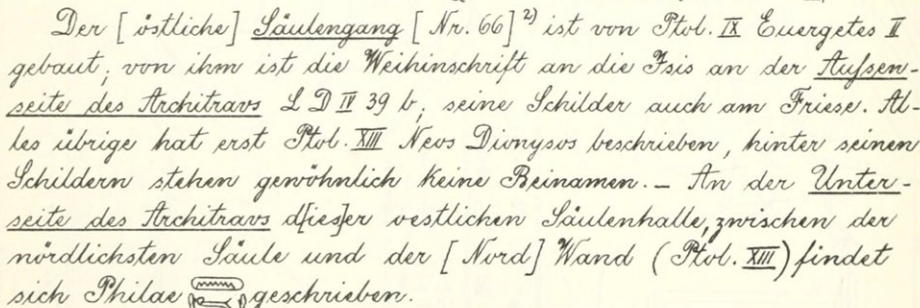 Der [östliche] Säulengang [Nr. 66]²⁾ ist von Ptol. IX Euergetes II
gebaut, von ihm ist die Weihinschrift an die Isis an der Aufsen-
seite des Architravs L D IV 39 b, seine Schilder auch am Friese. Al-
les übrige hat erst Ptol. XIII Neos Dionysos beschrieben, hinter seinen
Schildern stehen gewöhnlich keine Beinamen. – An der Unter-
seite des Architravs d[ies]er oestlichen Säulenhalle, zwischen der
nördlichsten Säule und der [Nord] Wand (Ptol. XIII) findet
sich Philae geschrieben.